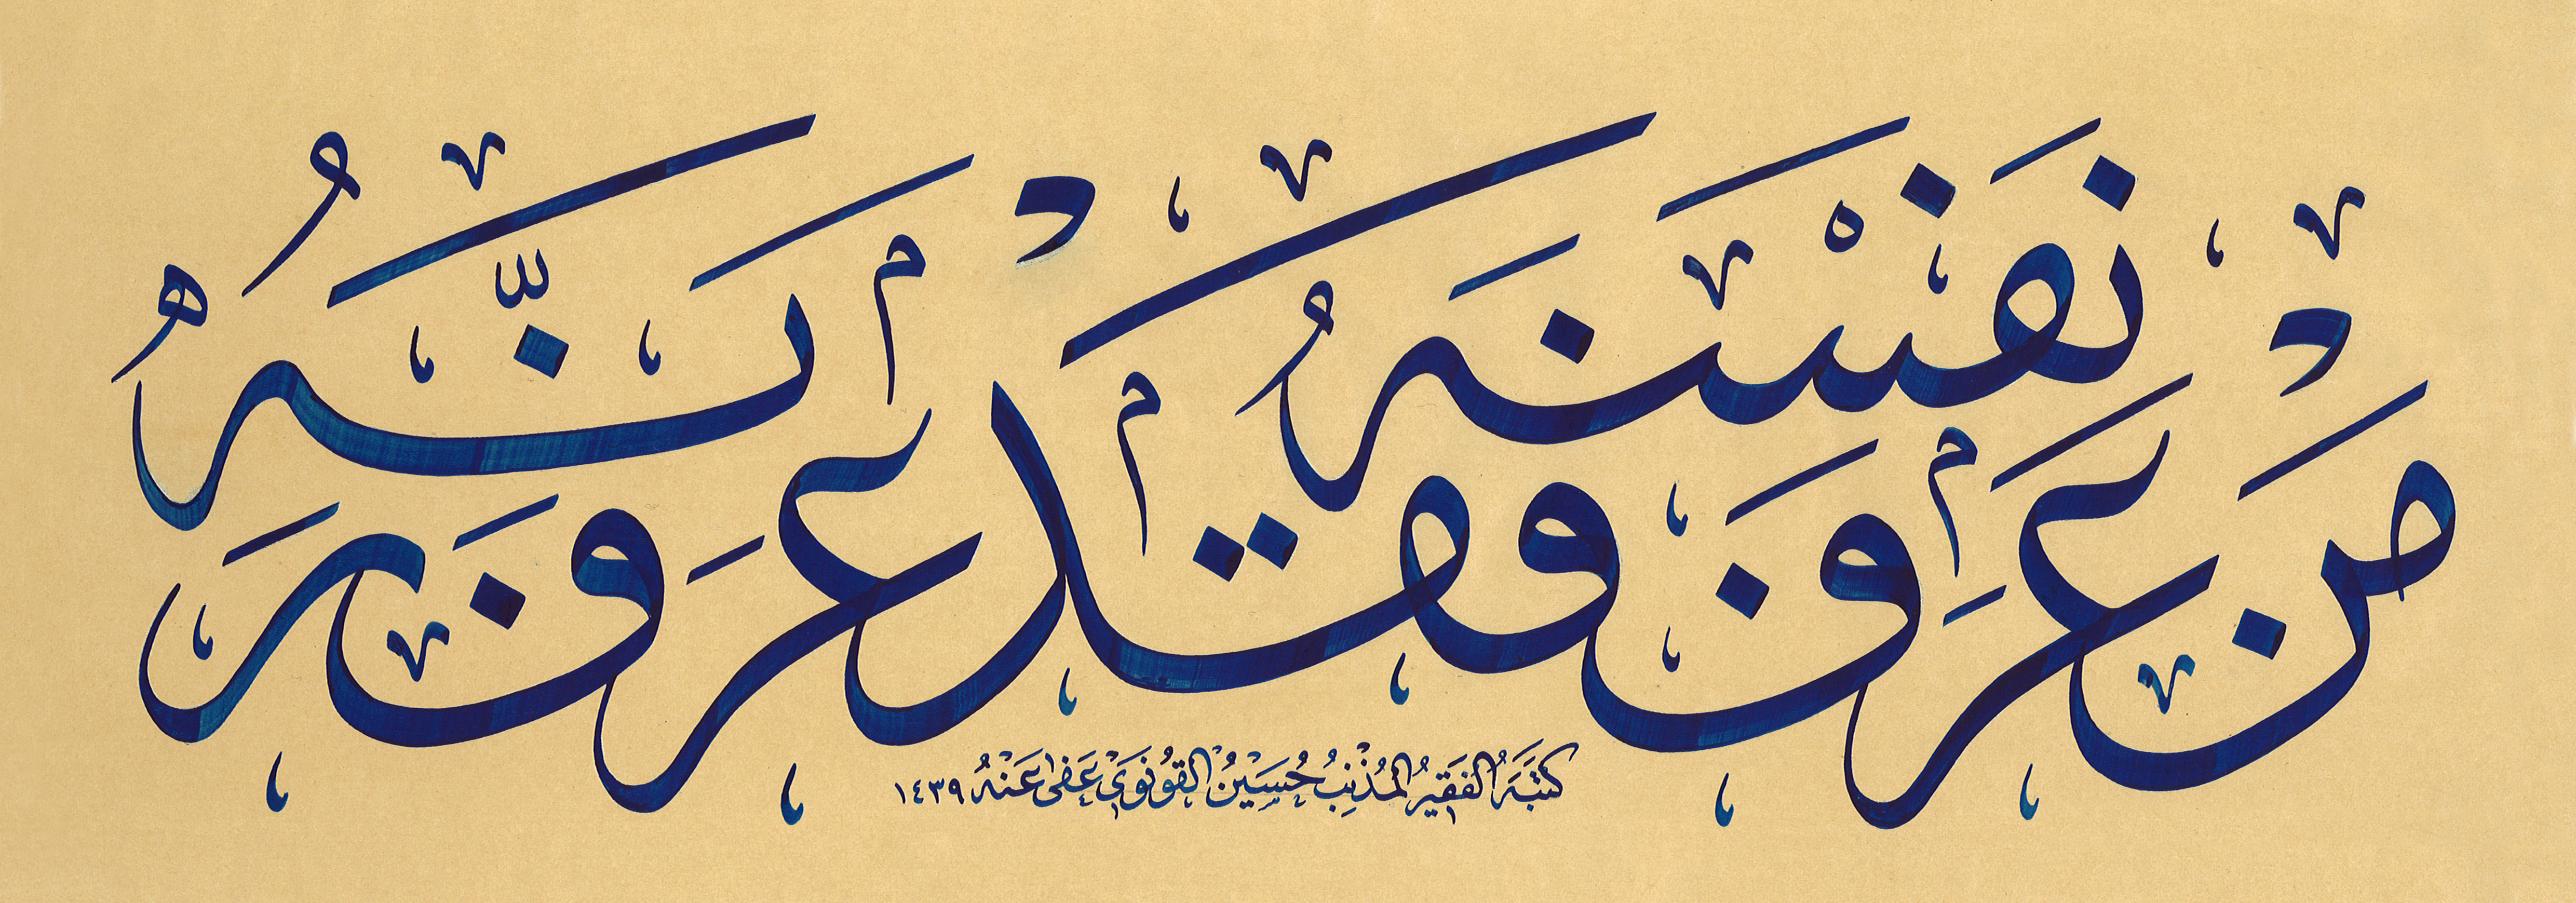 مَنْ عَرَفَ نَفْسَهُ فَقَدْ عَرَفَ رَبَّهُ
كتبه الفقير المذنب حسين القونوي عفى عنه ١٤٣٩